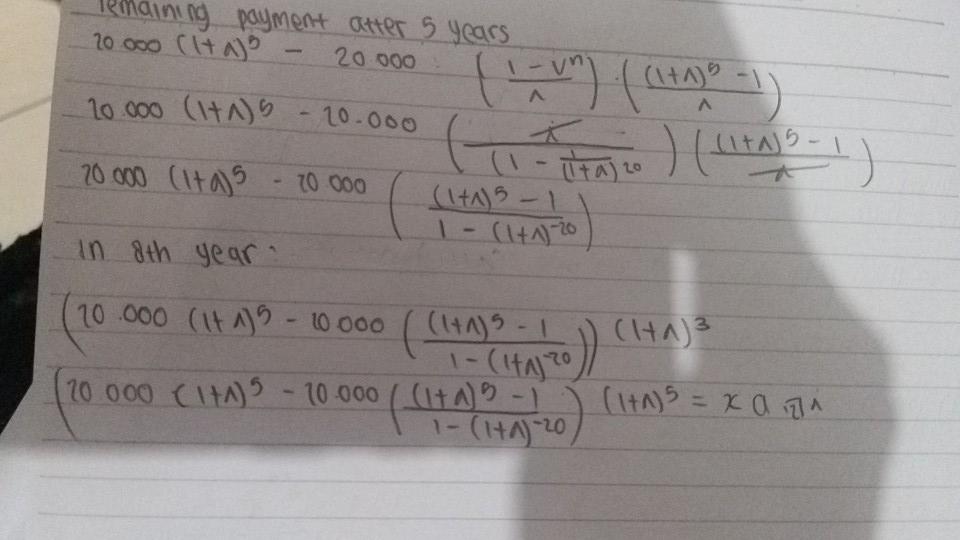 remaining payment after 5 years
20.000 (1+i)^5 - 20 000 . ( (1 - v^n) / i ) . ( ((1+i)^5 - 1) / i )
20.000 (1+i)^5 - 20.000 ( i / (1 - 1/(1+i)^20) ) ( ((1+i)^5 - 1) / i )
20 000 (1+i)^5 - 20 000 ( ((1+i)^5 - 1) / (1 - (1+i)^-20) )
in 8th year :
(20.000 (1+i)^5 - 20.000 ( ((1+i)^5 - 1) / (1 - (1+i)^-20) )) (1+i)^3
(20 000 (1+i)^5 - 20.000 ( ((1+i)^5 - 1) / (1 - (1+i)^-20) ) (1+i)^5 = x a